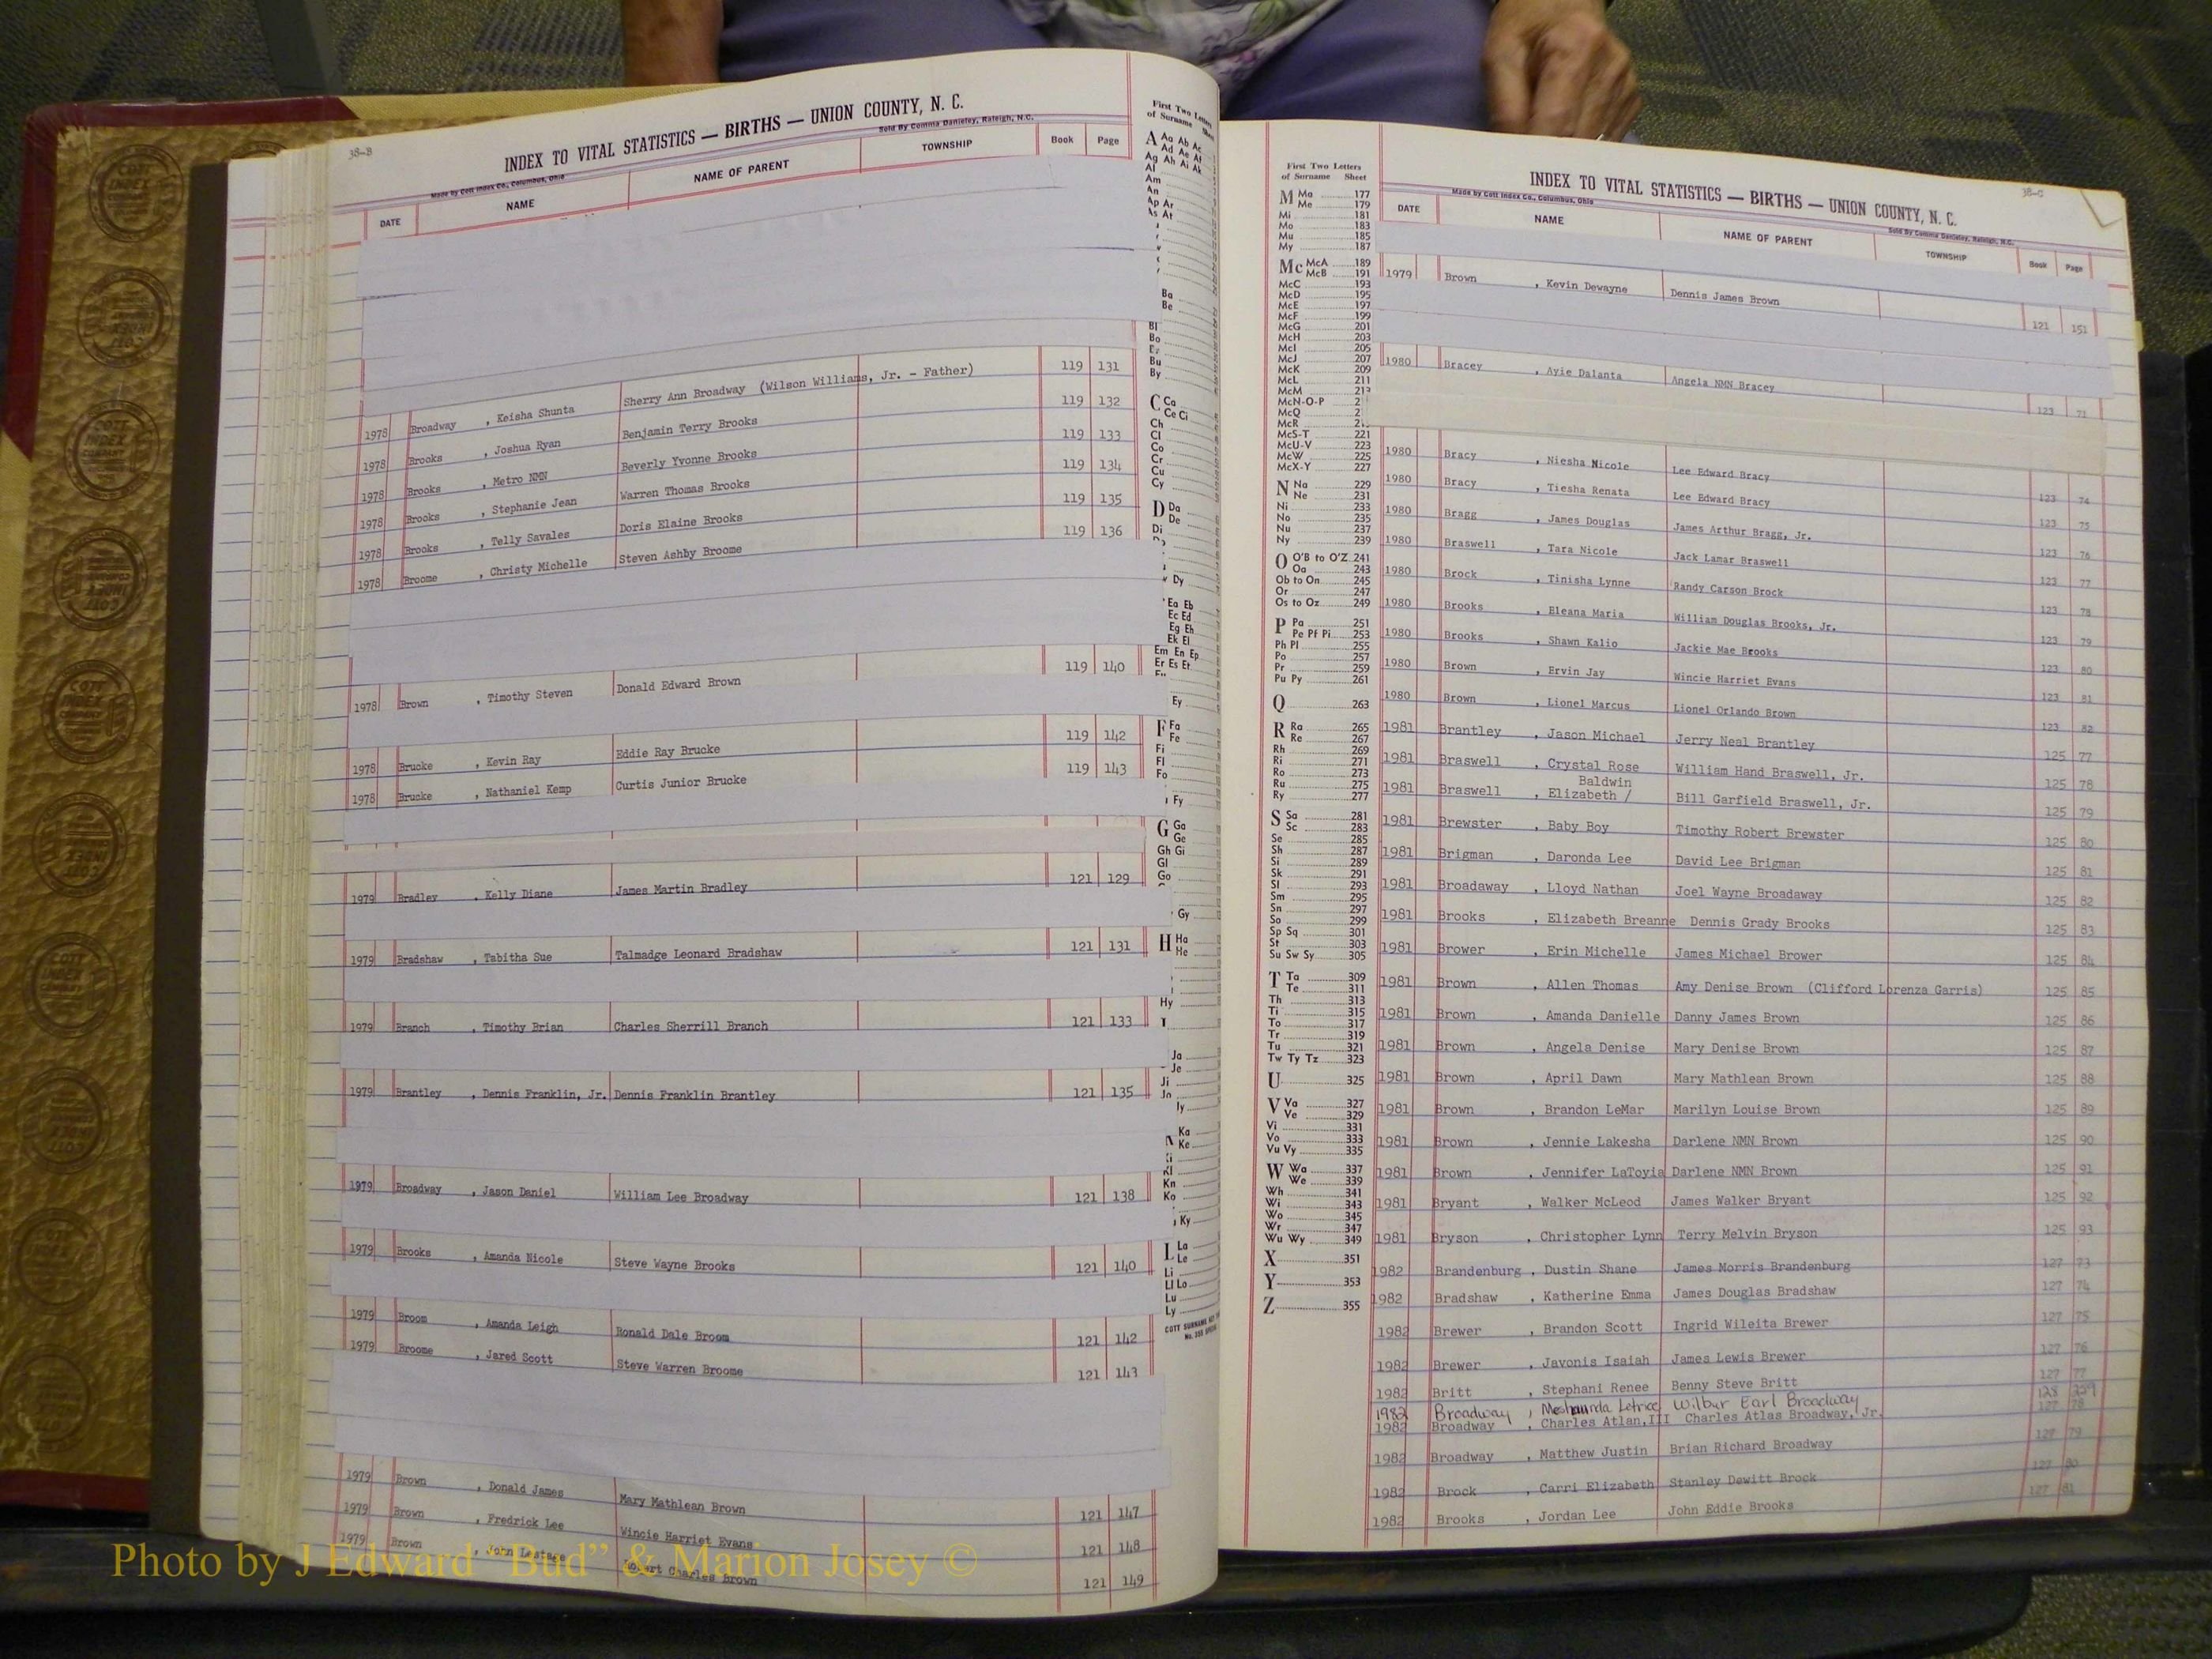 38-B
INDEX TO VITAL STATISTICS — BIRTHS — UNION COUNTY, N. C.
Made by Cott Index Co., Columbus, Ohio
Sold By Comma Danieley, Raleigh, N.C.
DATE NAME NAME OF PARENT TOWNSHIP Book Page
1978 Broadway , Keisha Shunta Sherry Ann Broadway (Wilson Williams, Jr. - Father) 119 131
1978 Brooks , Joshua Ryan Benjamin Terry Brooks 119 132
1978 Brooks , Metro NMN Beverly Yvonne Brooks 119 133
1978 Brooks , Stephanie Jean Warren Thomas Brooks 119 134
1978 Brooks , Telly Savales Doris Elaine Brooks 119 135
1978 Broome , Christy Michelle Steven Ashby Broome 119 136
1978 Brown , Timothy Steven Donald Edward Brown 119 140
1978 Brucke , Kevin Ray Eddie Ray Brucke 119 142
1978 Brucke , Nathaniel Kemp Curtis Junior Brucke 119 143
1979 Bradley , Kelly Diane James Martin Bradley 121 129
1979 Bradshaw , Tabitha Sue Talmadge Leonard Bradshaw 121 131
1979 Branch , Timothy Brian Charles Sherrill Branch 121 133
1979 Brantley , Dennis Franklin, Jr. Dennis Franklin Brantley 121 135
1979 Broadway , Jason Daniel William Lee Broadway 121 138
1979 Brooks , Amanda Nicole Steve Wayne Brooks 121 140
1979 Broom , Amanda Leigh Ronald Dale Broom 121 142
1979 Broome , Jared Scott Steve Warren Broome 121 143
1979 Brown , Donald James Mary Mathlean Brown 121 147
1979 Brown , Fredrick Lee Wincie Harriet Evans 121 148
1979 Brown , John Robert Charles Brown 121 149
First Two Letters
of Surname Sheet
A Aa Ab Ac
Ad Ae Af
Ag Ah Ai Ak
Al
Am
An
Ap Ar
As At
Ba
Be
Bl
Bo
Bu
By
C Ca
Ce Ci
Ch
Cl
Co
Cr
Cu
Cy
D Da
De
Di
Dy
Ea Eb
Ec Ed
Eg Eh
Ek El
Em En Ep
Er Es Et
Ey
F Fa
Fe
Fi
Fl
Fo
Fy
G Ga
Ge
Gh Gi
Gl
Go
Gy
H Ha
He
Hy
Ja
Je
Ji
Jo
Ka
Ke
Kn
Ko
Ky
L La
Le
Li
Ll Lo
Lu
Ly
38-C
INDEX TO VITAL STATISTICS — BIRTHS — UNION COUNTY, N. C.
Made by Cott Index Co., Columbus, Ohio
Sold By Comma Danieley, Raleigh, N.C.
First Two Letters
of Surname Sheet
M Ma 177
Me 179
Mi 181
Mo 183
Mu 185
My 187
Mc McA 189
McB 191
McC 193
McD 195
McE 197
McF 199
McG 201
McH 203
McI 205
McJ 207
McK 209
McL 211
McM
McN-O-P
McQ
McR
McS-T 221
McU-V 223
McW 225
McX-Y 227
N Na 229
Ne 231
Ni 233
No 235
Nu 237
Ny 239
O O'B to O'Z 241
Oa 243
Ob to On 245
Or 247
Os to Oz 249
P Pa 251
Pe Pf Pi 253
Ph Pl 255
Po 257
Pr 259
Pu Py 261
Q 263
R Ra 265
Re 267
Rh 269
Ri 271
Ro 273
Ru 275
Ry 277
S Sa 281
Sc 283
Se 285
Sh 287
Si 289
Sk 291
Sl 293
Sm 295
Sn 297
So 299
Sp Sq 301
St 303
Su Sw Sy 305
T Ta 309
Te 311
Th 313
Ti 315
To 317
Tr 319
Tu 321
Tw Ty Tz 323
U 325
V Va 327
Ve 329
Vi 331
Vo 333
Vu Vy 335
W Wa 337
We 339
Wh 341
Wi 343
Wo 345
Wr 347
Wu Wy 349
X 351
Y 353
Z 355
DATE NAME NAME OF PARENT TOWNSHIP Book Page
1979 Brown , Kevin Dewayne Dennis James Brown 121 151
1980 Bracey , Ayie Dalanta Angela NMN Bracey 123 71
1980 Bracy , Niesha Nicole Lee Edward Bracy 123 74
1980 Bracy , Tiesha Renata Lee Edward Bracy 123 75
1980 Bragg , James Douglas James Arthur Bragg, Jr. 123 76
1980 Braswell , Tara Nicole Jack Lamar Braswell 123 77
1980 Brock , Tinisha Lynne Randy Carson Brock 123 78
1980 Brooks , Eleana Maria William Douglas Brooks, Jr. 123 79
1980 Brooks , Shawn Kalio Jackie Mae Brooks 123 80
1980 Brown , Ervin Jay Wincie Harriet Evans 123 81
1980 Brown , Lionel Marcus Lionel Orlando Brown 123 82
1981 Brantley , Jason Michael Jerry Neal Brantley 125 77
1981 Braswell , Crystal Rose William Hand Braswell, Jr. 125 78
Baldwin
1981 Braswell , Elizabeth / Bill Garfield Braswell, Jr. 125 79
1981 Brewster , Baby Boy Timothy Robert Brewster 125 80
1981 Brigman , Daronda Lee David Lee Brigman 125 81
1981 Broadaway , Lloyd Nathan Joel Wayne Broadaway 125 82
1981 Brooks , Elizabeth Breanne Dennis Grady Brooks 125 83
1981 Brower , Erin Michelle James Michael Brower 125 84
1981 Brown , Allen Thomas Amy Denise Brown (Clifford Lorenza Garris) 125 85
1981 Brown , Amanda Danielle Danny James Brown 125 86
1981 Brown , Angela Denise Mary Denise Brown 125 87
1981 Brown , April Dawn Mary Mathlean Brown 125 88
1981 Brown , Brandon LeMar Marilyn Louise Brown 125 89
1981 Brown , Jennie Lakesha Darlene NMN Brown 125 90
1981 Brown , Jennifer LaToyia Darlene NMN Brown 125 91
1981 Bryant , Walker McLeod James Walker Bryant 125 92
1981 Bryson , Christopher Lynn Terry Melvin Bryson 125 93
1982 Brandenburg , Dustin Shane James Morris Brandenburg 127 73
1982 Bradshaw , Katherine Emma James Douglas Bradshaw 127 74
1982 Brewer , Brandon Scott Ingrid Wileita Brewer 127 75
1982 Brewer , Javonis Isaiah James Lewis Brewer 127 76
1982 Britt , Stephani Renee Benny Steve Britt 127 77
1982 Broadway , Meshaunda Letrice Wilbur Earl Broadway 128
1982 Broadway , Charles Atlan,III Charles Atlas Broadway, Jr. 127 78
1982 Broadway , Matthew Justin Brian Richard Broadway 127 79
1982 Brock , Carri Elizabeth Stanley Dewitt Brock 127 80
1982 Brooks , Jordan Lee John Eddie Brooks 127 81
Photo by J Edward “Bud” & Marion Josey ©